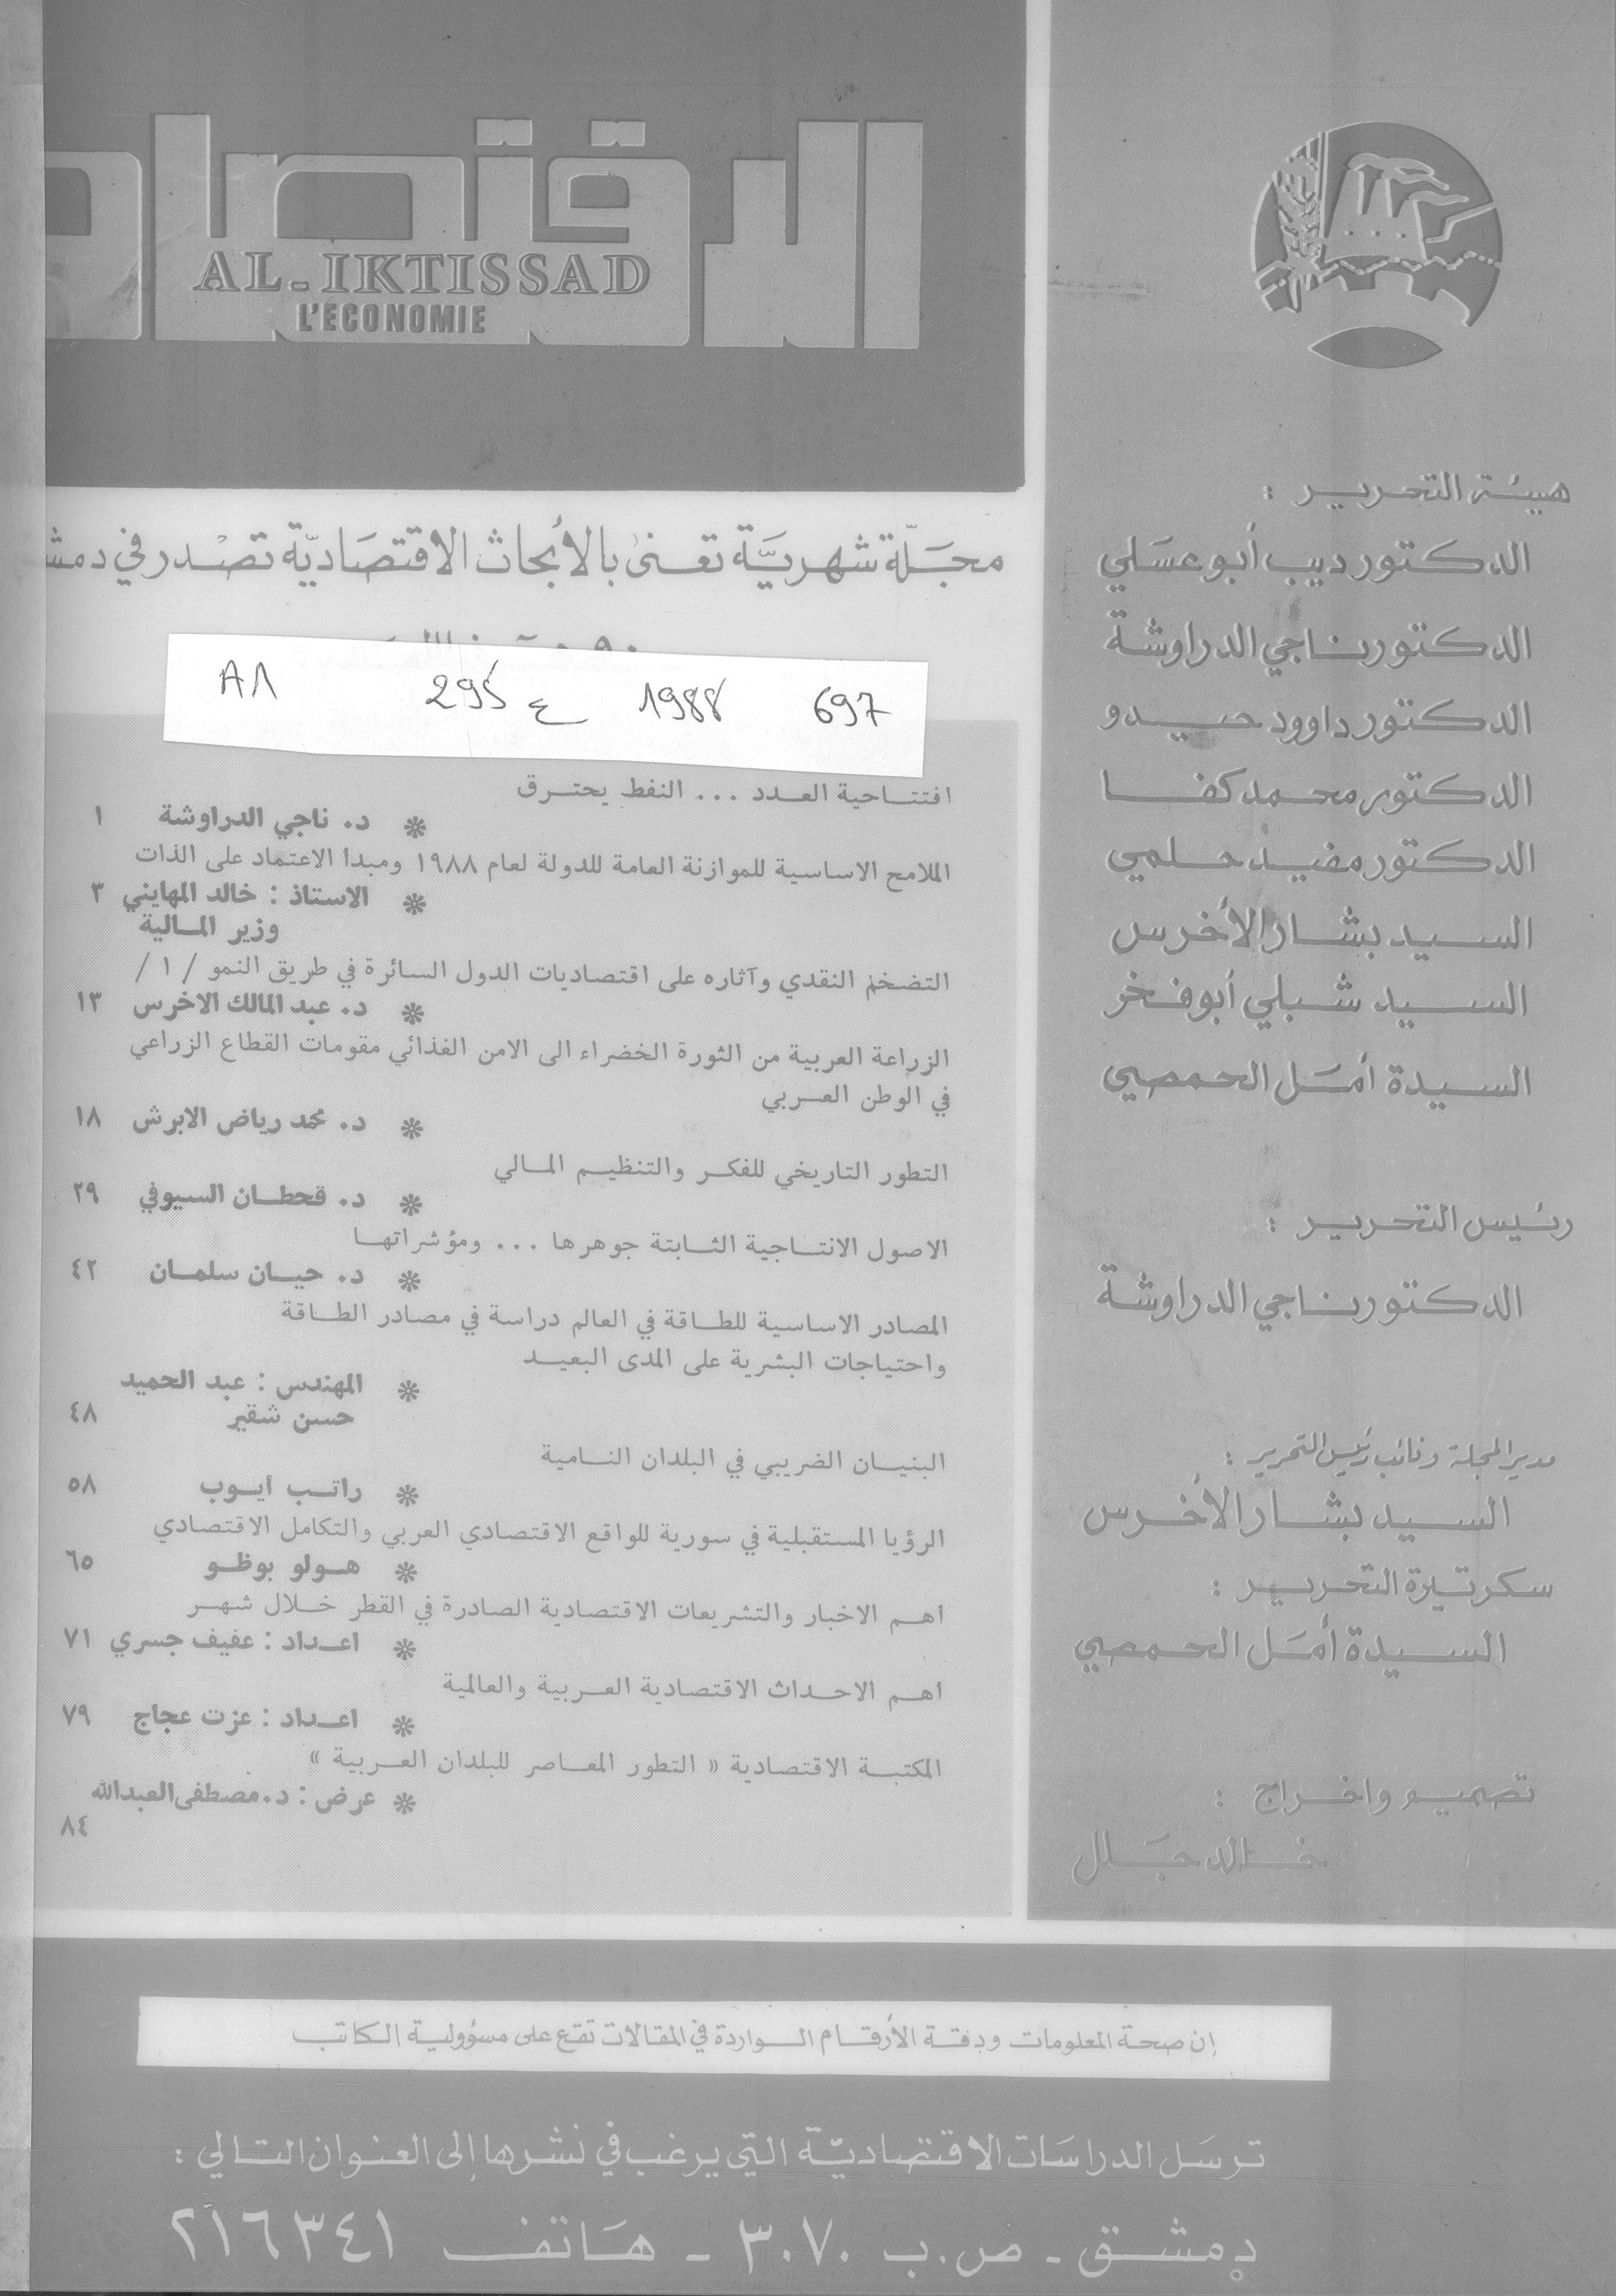 الاقتصاد
AL-IKTISSAD
L'ECONOMIE
مجلة شهرية تعنى بالأبحاث الاقتصادية تصدر في دمشـ
A1 295 ع 1988 697
افتتاحية العدد ... النفط يحترق
* د. ناجي الدراوشة ١
الملامح الاساسية للموازنة العامة للدولة لعام ١٩٨٨ ومبدأ الاعتماد على الذات
* الاستاذ : خالد المهايني ٣
وزير المالية
التضخم النقدي وآثاره على اقتصاديات الدول السائرة في طريق النمو / ١ /
* د. عبد المالك الاخرس ١٣
الزراعة العربية من الثورة الخضراء الى الامن الغذائي مقومات القطاع الزراعي
في الوطن العربي
* د. محمد رياض الابرش ١٨
التطور التاريخي للفكر والتنظيم المالي
* د. قحطان السيوفي ٢٩
الاصول الانتاجية الثابتة جوهرها ... ومؤشراتها
* د. حيان سلمان ٤٢
المصادر الاساسية للطاقة في العالم دراسة في مصادر الطاقة
واحتياجات البشرية على المدى البعيد
* المهندس : عبد الحميد
حسن شقير ٤٨
البنيان الضريبي في البلدان النامية
* راتب أيوب ٥٨
الرؤيا المستقبلية في سورية للواقع الاقتصادي العربي والتكامل الاقتصادي
* هولو بوظو ٦٥
اهم الاخبار والتشريعات الاقتصادية الصادرة في القطر خلال شهر
* اعداد : عفيف جسري ٧١
اهم الاحداث الاقتصادية العربية والعالمية
* اعداد : عزت عجاج ٧٩
المكتبة الاقتصادية « التطور المعاصر للبلدان العربية »
* عرض : د. مصطفى العبدالله
٨٤
هيئة التحرير :
الدكتور ديب أبو عسلي
الدكتور ناجي الدراوشة
الدكتور داوود حيدو
الدكتور محمد كفا
الدكتور مفيد حلمي
السيد بشار الأخرس
السيد شبلي أبو فخر
السيدة أمل الحمصي
رئيس التحرير :
الدكتور ناجي الدراوشة
مدير المجلة ونائب رئيس التحرير :
السيد بشار الأخرس
سكرتيرة التحرير :
السيدة أمل الحمصي
تصميم واخراج :
خالد جلال
إن صحة المعلومات ودقة الأرقام الواردة في المقالات تقع على مسؤولية الكاتب
ترسل الدراسات الاقتصادية التي يرغب في نشرها إلى العنوان التالي :
دمشق - ص.ب ٣٠٧٠ - هاتف ٢١٦٣٤١